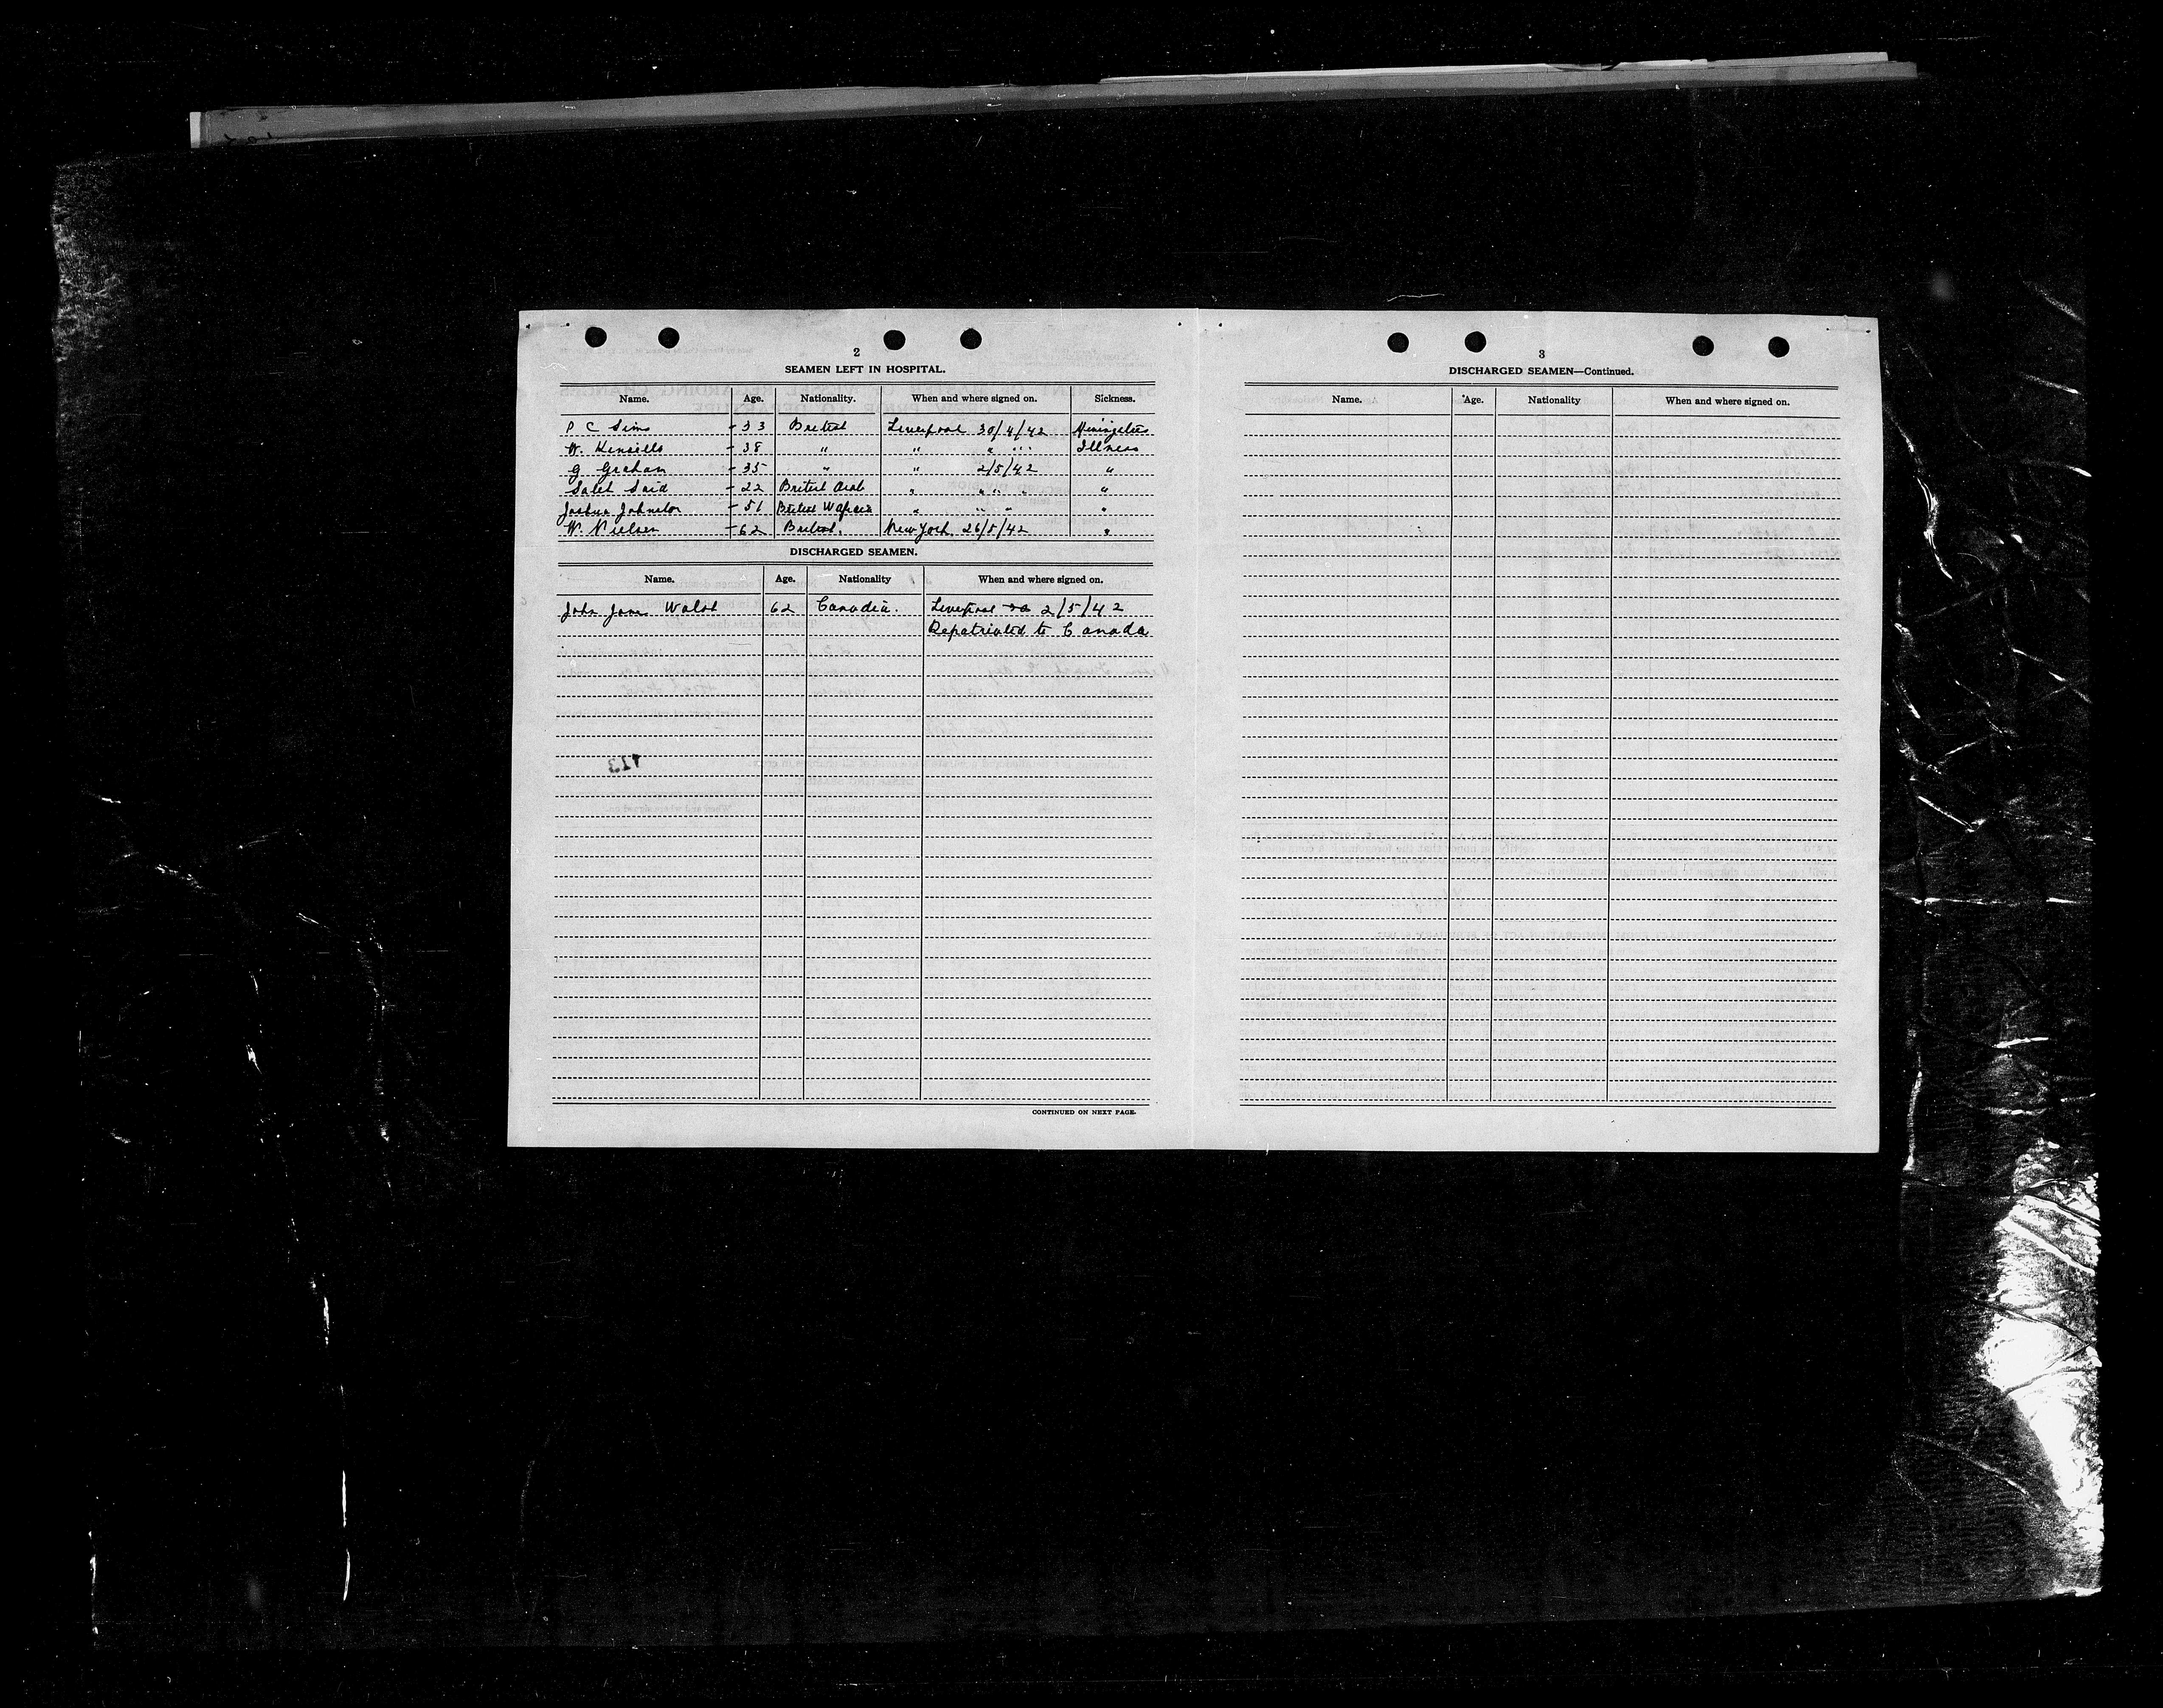 2
SEAMEN LEFT IN HOSPITAL.
Name. Age. Nationality. When and where signed on. Sickness.
P C Sims - 33 British Liverpool 30/4/42 Meningitis
W. Kinsella - 38 " " " " " Illness
G Graham - 35 " " 2/5/42 "
Saleh Said - 22 British Arab " " " " "
Joshua Johnston - 51 British W " " " " "
W. Nielsen - 62 British. New York 26/5/42 "
DISCHARGED SEAMEN.
Name. Age. Nationality When and where signed on.
John James Walsh 62 Canadia. Liverpool 2/5/42
Repatriated to Canada
113
CONTINUED ON NEXT PAGE.
3
DISCHARGED SEAMEN—Continued.
Name. Age. Nationality When and where signed on.